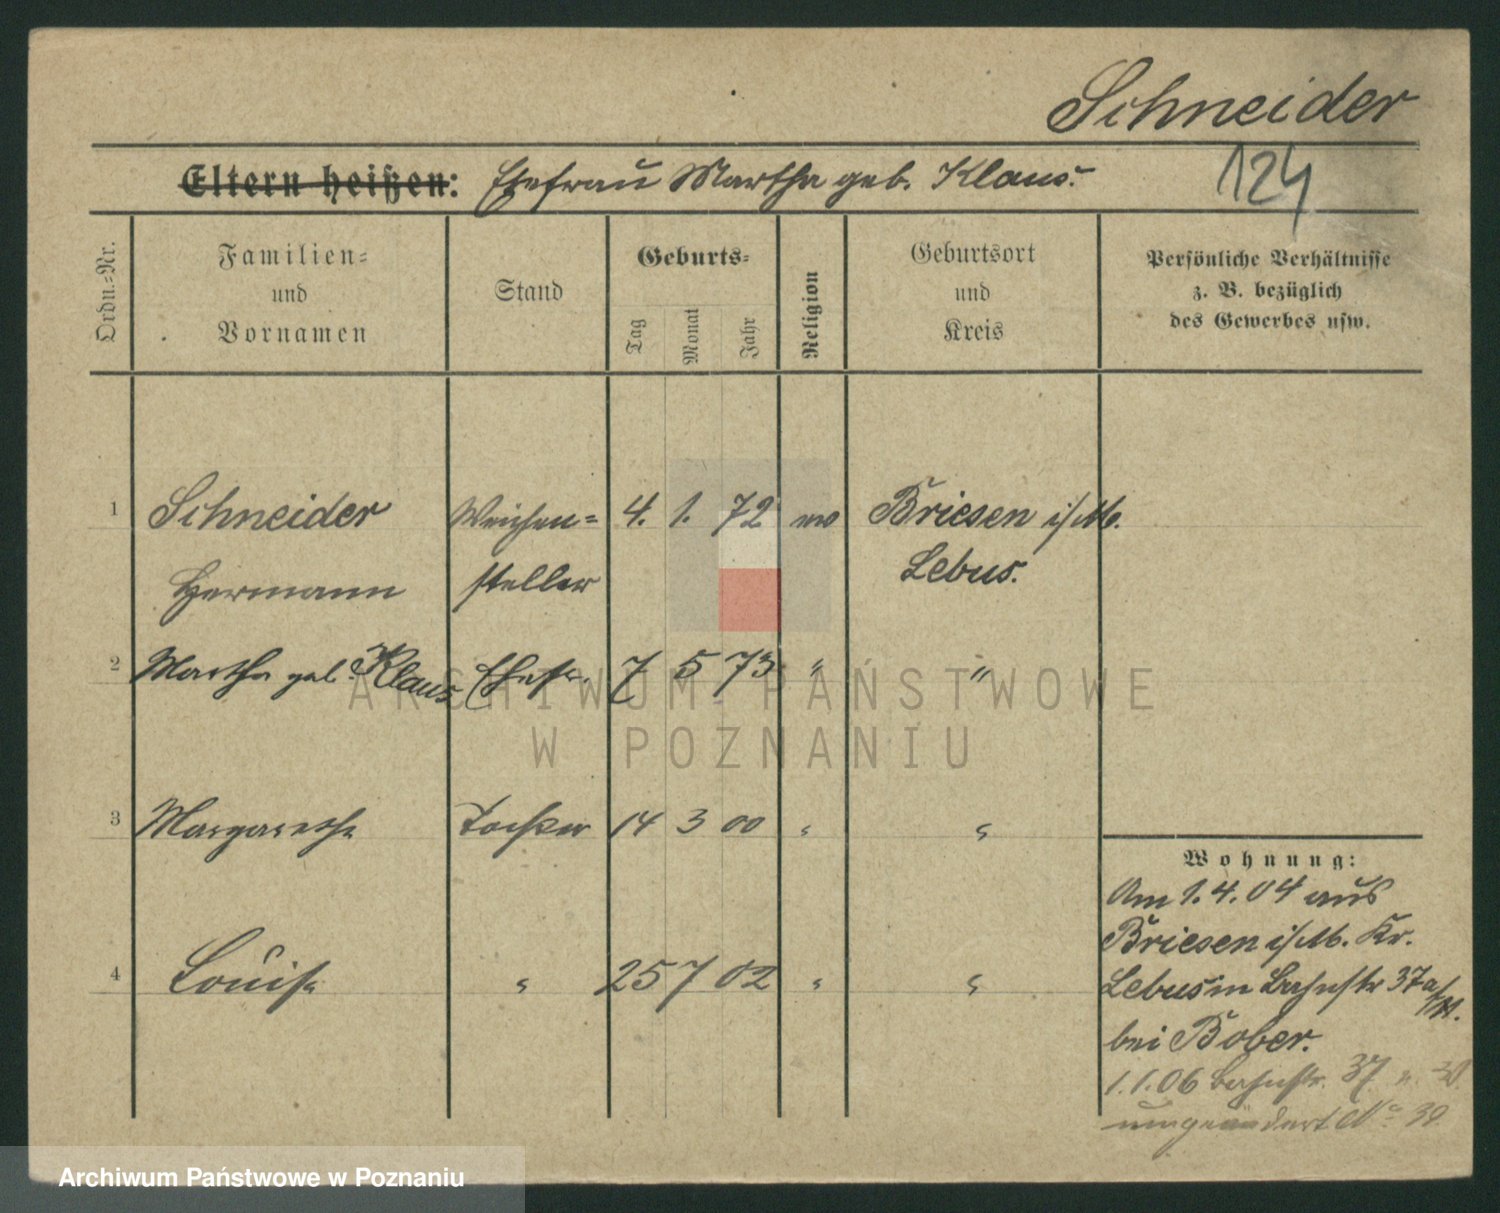 Schneider
124
Eltern heißen: Ehefrau Martha geb. Klaus.
Ordn.-Nr.
Familien-
und
Vornamen
Stand
Geburts-
Tag
Monat
Jahr
Religion
Geburtsort
und
Kreis
Persönliche Verhältnisse
z. B. bezüglich
des Gewerbes usw.
1 Schneider Weichen- 4. 1. 72 ev Briesen i/M.
Hermann steller Lebus.
2 Martha geb. Klaus Ehefr. 7 5 73 " "
ARCHIWUM PAŃSTWOWE
W POZNANIU
3 Margarethe Tochter 14 3 00 " "
4 Louise " 25 7 02 " "
Wohnung:
Am 1.4.04 aus
Briesen i/M. Kr.
Lebus in Bahnstr 37a
bei Bober.
1.1.06 Bahnstr. 37
umgeändert No 38
Archiwum Państwowe w Poznaniu